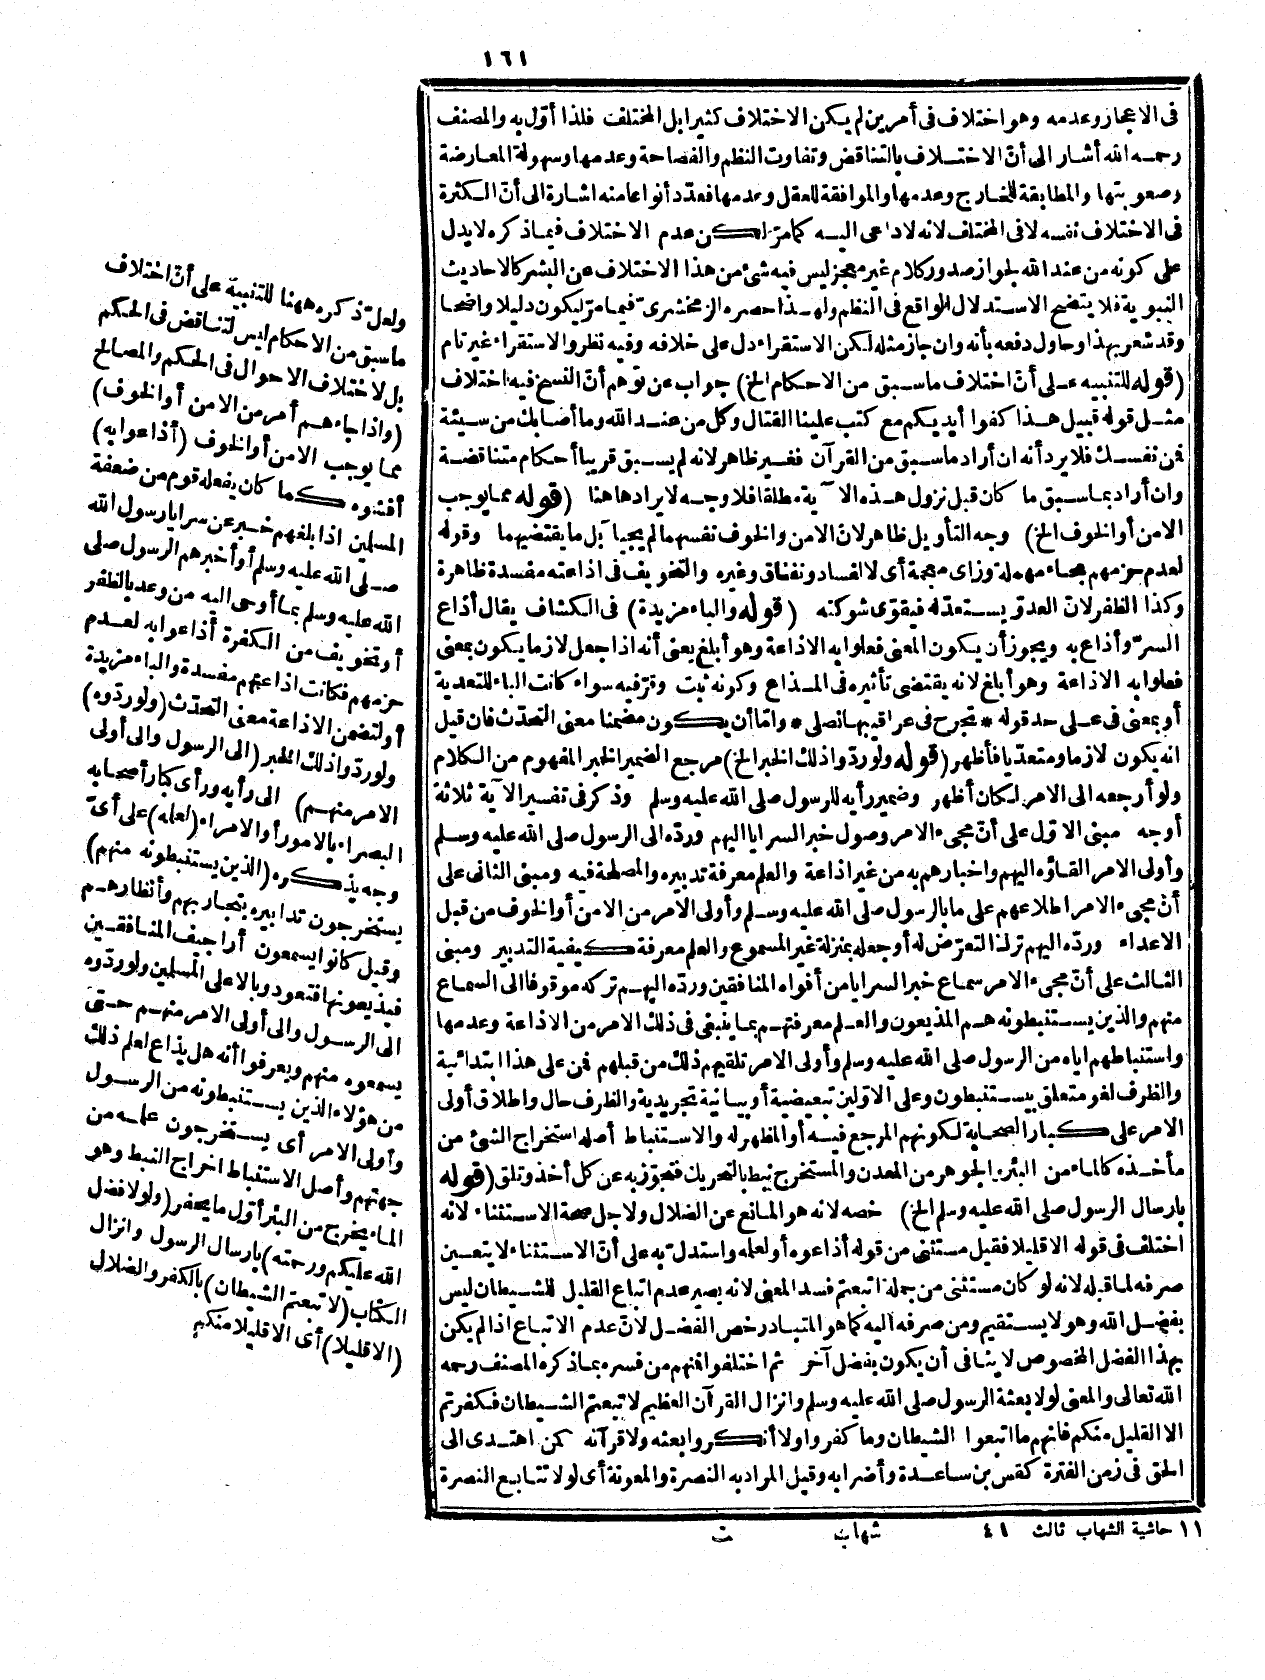 ١٦١
فى الاعجاز وعدمه وهو اختلاف فى أمرين لم يكن الاختلاف كثيرا بل المختلف فلذا أوّل به والمصنف
رحمه الله أشار الى أنّ الاختلاف بالتناقض وتفاوت النظم والفصاحة وعدمها وسهولة المعارضة
وصعوبتها والمطابقة للخارج وعدمها والموافقة للعقل وعدمها فعدّد أنواعا منه اشارة الى أنّ الكثرة
فى الاختلاف نفسه لا فى المختلف لانه لا داعى اليه كما مرّ لكن عدم الاختلاف فيما ذكره لا يدل
على كونه من عند الله لجواز صدور كلام غير معجز ليس فيه شئ من هذا الاختلاف عن البشر كالاحاديث
النبوية فلا يتضح الاستدلال الواقع فى النظم ولهذا حصره الزمخشرى فيما مرّ ليكون دليلا واضحا
وقد شعر بهذا وحاول دفعه بأنه وان جاز مثله لكن الاستقراء دل على خلافه وفيه نظر والاستقراء غير تام
(قوله للتنبيه على أنّ اختلاف ما سبق من الاحكام الخ) جواب عن توهم أنّ النسخ فيه اختلاف
مثل قوله قبيل هذا كفوا أيديكم مع كتب علينا القتال وكل من عند الله وما أصابك من سيئة
فمن نفسك فلا يرد أنه ان أراد ما سبق من القرآن فغير ظاهر لانه لم يسبق قريبا أحكام متناقضة
وان أراد بما سبق ما كان قبل نزول هذه الآية مطلقا فلا وجه لايرادها هنا (قوله مما يوجب
الامن أو الخوف الخ) وجه التأويل ظاهر لانّ الامن والخوف نفسهما لم يجيآ بل ما يقتضيهما وقوله
لعدم حزمهم بحاء مهملة وزاى معجمة أى لا لفساد ونفاق وغيره والتخويف فى اذاعته مفسدة ظاهرة
وكذا الظفر لانّ العدوّ يستعدّ له فيقوى شوكته (قوله والباء مزيدة) فى الكشاف يقال أذاع
السرّ وأذاع به ويجوز أن يكون المعنى فعلوا به الاذاعة وهو أبلغ يعنى أنه اذا جعل لازما يكون بمعنى
فعلوا به الاذاعة وهو أبلغ لانه يقتضى تأثيره فى المذاع وكونه ثبت وتقرّ فيه سواء كانت الباء للتعدية
أو بمعنى فى على حد قوله * تجرح فى عراقيبها نصلى * وامّا أن يكون مضمنا معنى التحدّث فان قيل
انه يكون لازما ومتعديا فأظهر (قوله ولو ردّوا ذلك الخبر الخ) مرجع الضمير الخبر المفهوم من الكلام
ولو أرجعه الى الامر لكان أظهر وضمير رأيه للرسول صلى الله عليه وسلم وذكر فى تفسير الآية ثلاثة
أوجه مبنى الاوّل على أنّ مجىء الامر وصول خبر السرايا اليهم وردّه الى الرسول صلى الله عليه وسلم
وأولى الامر القاؤه اليهم واخبارهم به من غير اذاعة والعلم معرفة تدبيره والمصلحة فيه ومبنى الثانى على
أنّ مجىء الامر اطلاعهم على ما بالرسول صلى الله عليه وسلم وأولى الامر من الامن أو الخوف من قبل
الاعداء وردّه اليهم ترك التعرّض له أو جعله بمنزلة غير المسموع والعلم معرفة كيفية التدبير ومبنى
الثالث على أنّ مجىء الامر سماع خبر السرايا من أفواه المنافقين وردّه اليهم تركه موقوفا الى السماع
منهم والذين يستنبطونه هم المذيعون والعلم معرفتهم بما ينبغى فى ذلك الامر من الاذاعة وعدمها
واستنباطهم اياه من الرسول صلى الله عليه وسلم وأولى الامر تلقيهم ذلك من قبلهم فمن على هذا ابتدائية
والظرف لغو متعلق بيستنبطون وعلى الاوّلين تبعيضية أو بيانية تجريدية والظرف حال واطلاق أولى
الامر على كبار الصحابة لكونهم المرجع فيه أو المظهر له والاستنباط أصله استخراج الشئ من
مأخذه كالماء من البئر والجوهر من المعدن والمستخرج نبط بالتحريك فتجوّز به عن كل أخذ وتلق (قوله
بارسال الرسول صلى الله عليه وسلم الخ) خصه لانه هو المانع عن الضلال ولاجل صحة الاستثناء لانه
اختلف فى قوله الا قليلا فقيل مستثنى من قوله أذاعوه أو لعله واستدل به على أنّ الاستثناء لا يتعين
صرفه لما قبله لانه لو كان مستثنى من جملة اتبعتم فسد المعنى لانه يصير عدم اتباع القليل للشيطان ليس
بفضل الله وهو لا يستقيم ومن صرفه اليه كما هو المتبادر خص الفضل لانّ عدم الاتباع اذا لم يكن
بهذا الفضل المخصوص لا ينافى أن يكون بفضل آخر ثم اختلفوا فمنهم من فسره بما ذكره المصنف رحمه
الله تعالى والمعنى لولا بعثة الرسول صلى الله عليه وسلم وانزال القرآن العظيم لاتبعتم الشيطان فكفرتم
الا القليل منكم فانهم ما اتبعوا الشيطان وما كفروا ولا أنكروا بعثه ولا قرآنه كمن اهتدى الى
الحق فى زمن الفترة كقس بن ساعدة وأضرابه وقيل المراد به النصرة والمعونة أى لولا تتابع النصرة
ولعلّ ذكره ههنا للتنبيه على أنّ اختلاف
ما سبق من الاحكام ليس لتناقض فى الحكم
بل لاختلاف الاحوال فى الحكم والمصالح
(واذا جاءهم أمر من الامن أو الخوف)
مما يوجب الامن أو الخوف (أذاعوا به)
أفشوه كما كان يفعله قوم من ضعفة
المسلمين اذا بلغهم خبر عن سرايا رسول الله
صلى الله عليه وسلم أو أخبرهم الرسول صلى
الله عليه وسلم بما أوحى اليه من وعد بالظفر
أو تخويف من الكفرة أذاعوا به لعدم
حزمهم فكانت اذاعتهم مفسدة والباء مزيدة
أو لتضمن الاذاعة معنى التحدّث (ولو ردّوه)
ولو ردّوا ذلك الخبر (الى الرسول والى أولى
الامر منهم) الى رأيه ورأى كبار أصحابه
البصراء بالامور أو الامراء (لعلمه) على أىّ
وجه يذكره (الذين يستنبطونه منهم)
يستخرجون تدابيره بتجاربهم وأنظارهم
وقيل كانوا يسمعون أراجيف المنافقين
فيذيعونها فتعود وبالا على المسلمين ولو ردّوه
الى الرسول والى أولى الامر منهم حتى
يسمعوه منهم ويعرفوا أنه هل يذاع لعلم ذلك
من هؤلاء الذين يستنبطونه من الرسول
وأولى الامر أى يستخرجون علمه من
جهتهم وأصل الاستنباط اخراج النبط وهو
الماء يخرج من البئر أوّل ما يحفر (ولولا فضل
الله عليكم ورحمته) بارسال الرسول وانزال
الكتاب (لاتبعتم الشيطان) بالكفر والضلال
(الا قليلا) أى الا قليلا منكم
١١ حاشية الشهاب ثالث ٤١ شهاب ث